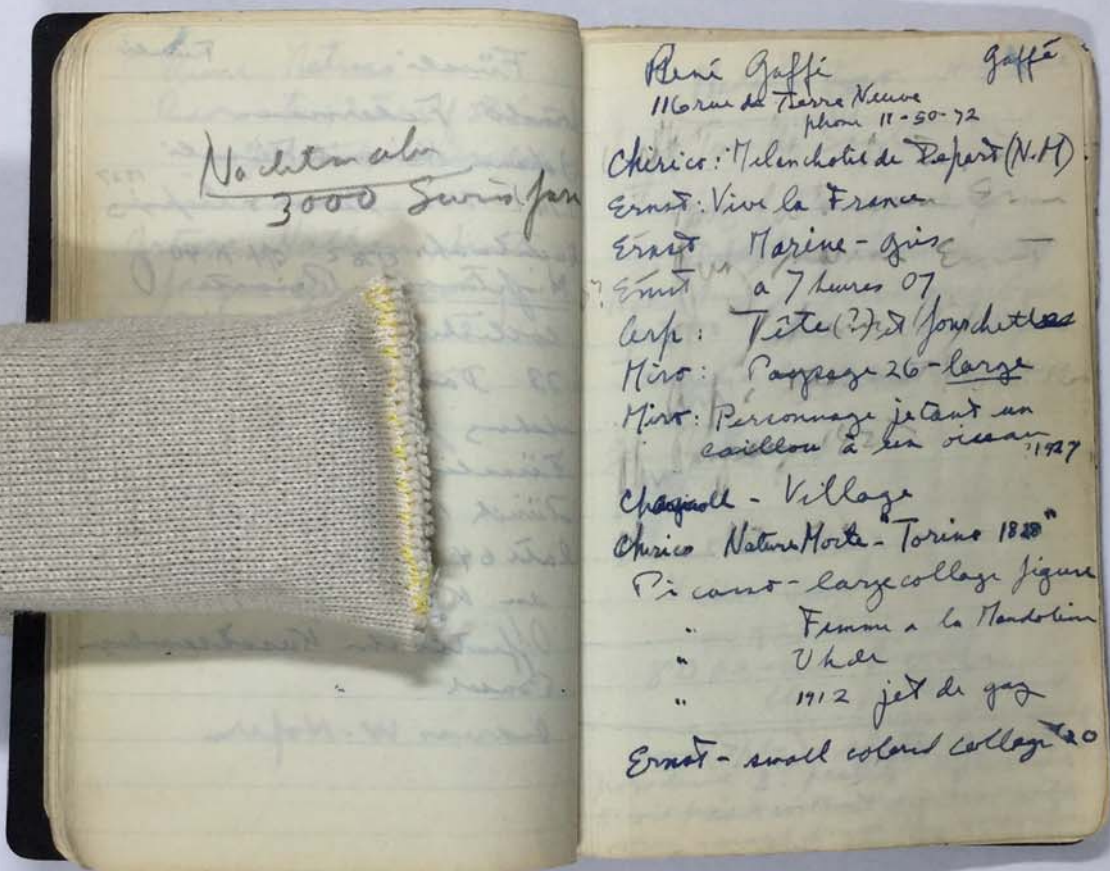 Nachtmahr
3000 Swiss fran
René Gaffé Gaffé
116 rue de Terre Neuve
phone 11-50-72
Chirico: Melancholie de Depart (N.M)
Ernst: Vive la France
Ernst Marine - gris
? Ernst a 7 heures 07
Arp: Tête (?) et fourchettes
Miro: Paysage 26 - large
Miro: Personnage jetant un
caillou à un oiseau 1927
Chagall - Village
Chirico Nature Morte - "Torino 1828"
Picasso - large collage figure
" Femme a la Mandoline
" Uhde
" 1912 jet de gaz
Ernst - small colored collage '20